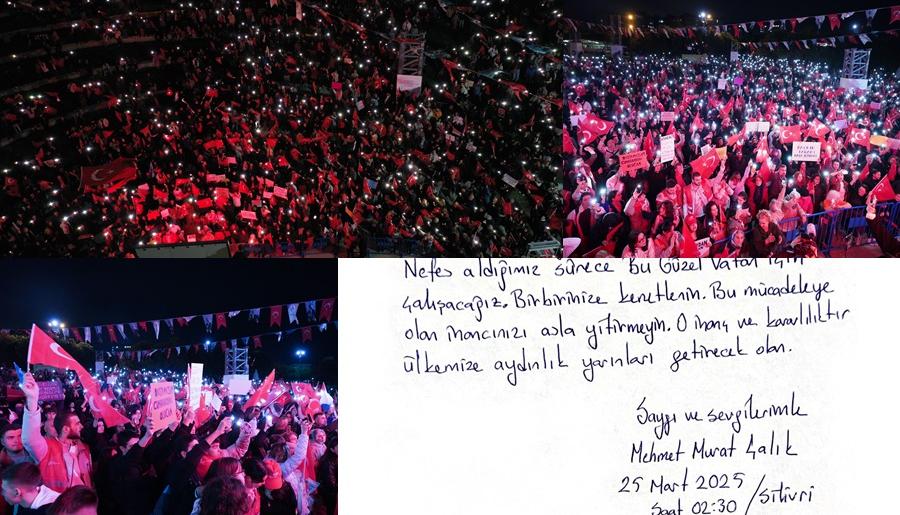 Nefes aldığımız sürece bu Güzel Vatan için
çalışacağız. Birbirinize kenetlenin. Bu mücadeleye
olan inancınızı asla yitirmeyin. O inanç ve kararlılıktır
ülkemize aydınlık yarınları getirecek olan.
Saygı ve sevgilerimle
Mehmet Murat Çalık
25 Mart 2025
Saat 02:30 / Silivri